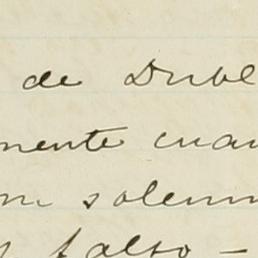 de Dubl
mente cuan
m solemn
y falso —